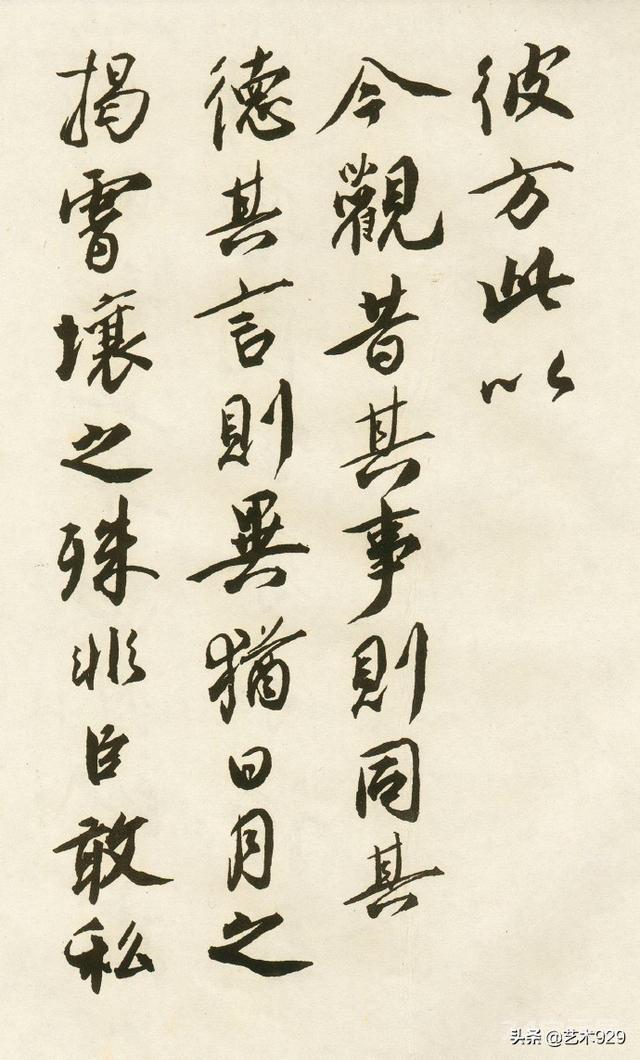 彼方此以
今觀昔其事則同其
德其言則異猶日月之
揭霄壤之殊非臣敢私
头条 @艺术929